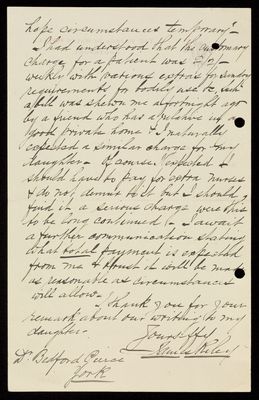 hope circumstances temporary" -
I had understood that the customary
charge for a patient was £2/2/-
weekly with various extras for sundry
requirements for bodily use &c, such
a bill was shewn me a fortnight ago
by a friend who has a relative in a
good private home & I naturally
expected a similar charge for my
daughter - Of course expected I
should have to pay for extra nurses
& do not demur to it but I should
find it a serious charge were this
to be long continued - I await
a further communication stating
what total payment is expected
from me & trust it will be made
as reasonable as circumstances
will allow.
I thank you for your
remark about our writing to my
daughter -
Yours ffy
Dr Bedford Pierce
York